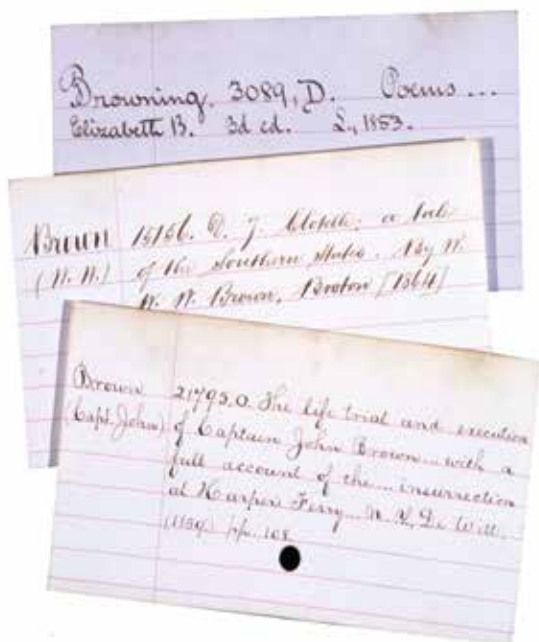 Browning, 3089, D. Poems ...
Elizabeth B. 3d ed. L., 1853.
Brown 15156. Q. 7. Clotelle: a tale
(W. W.) of the Southern States. By W.
W. W. Brown, Boston [1864]
Brown 21795.0. The life trial and execution
(Capt. John) of Captain John Brown ... with a
full account of the ... insurrection
at Harpers Ferry. N.Y., De Witt,
(1859) pp. 108